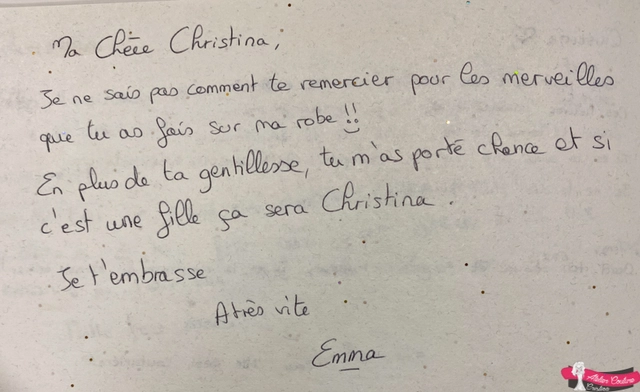 Ma Chère Christina,
Je ne sais pas comment te remercier pour les merveilles
que tu as fais sur ma robe !!
En plus de ta gentillesse, tu m'as porté chance et si
c'est une fille ça sera Christina.
Je t'embrasse
A très vite
Emma
Atelier Couture